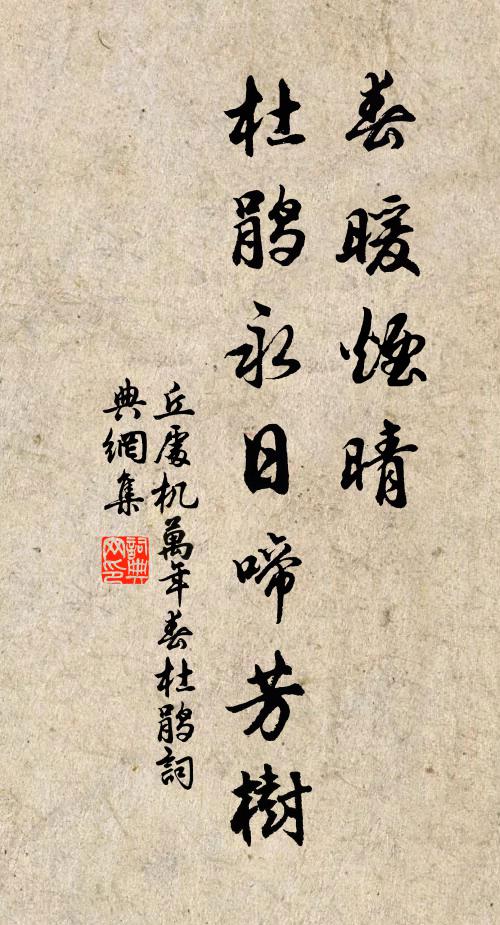 春暖煙晴
杜鹃永日啼芳樹
丘處机萬年春杜鹃詞
典網集
詞典
网印